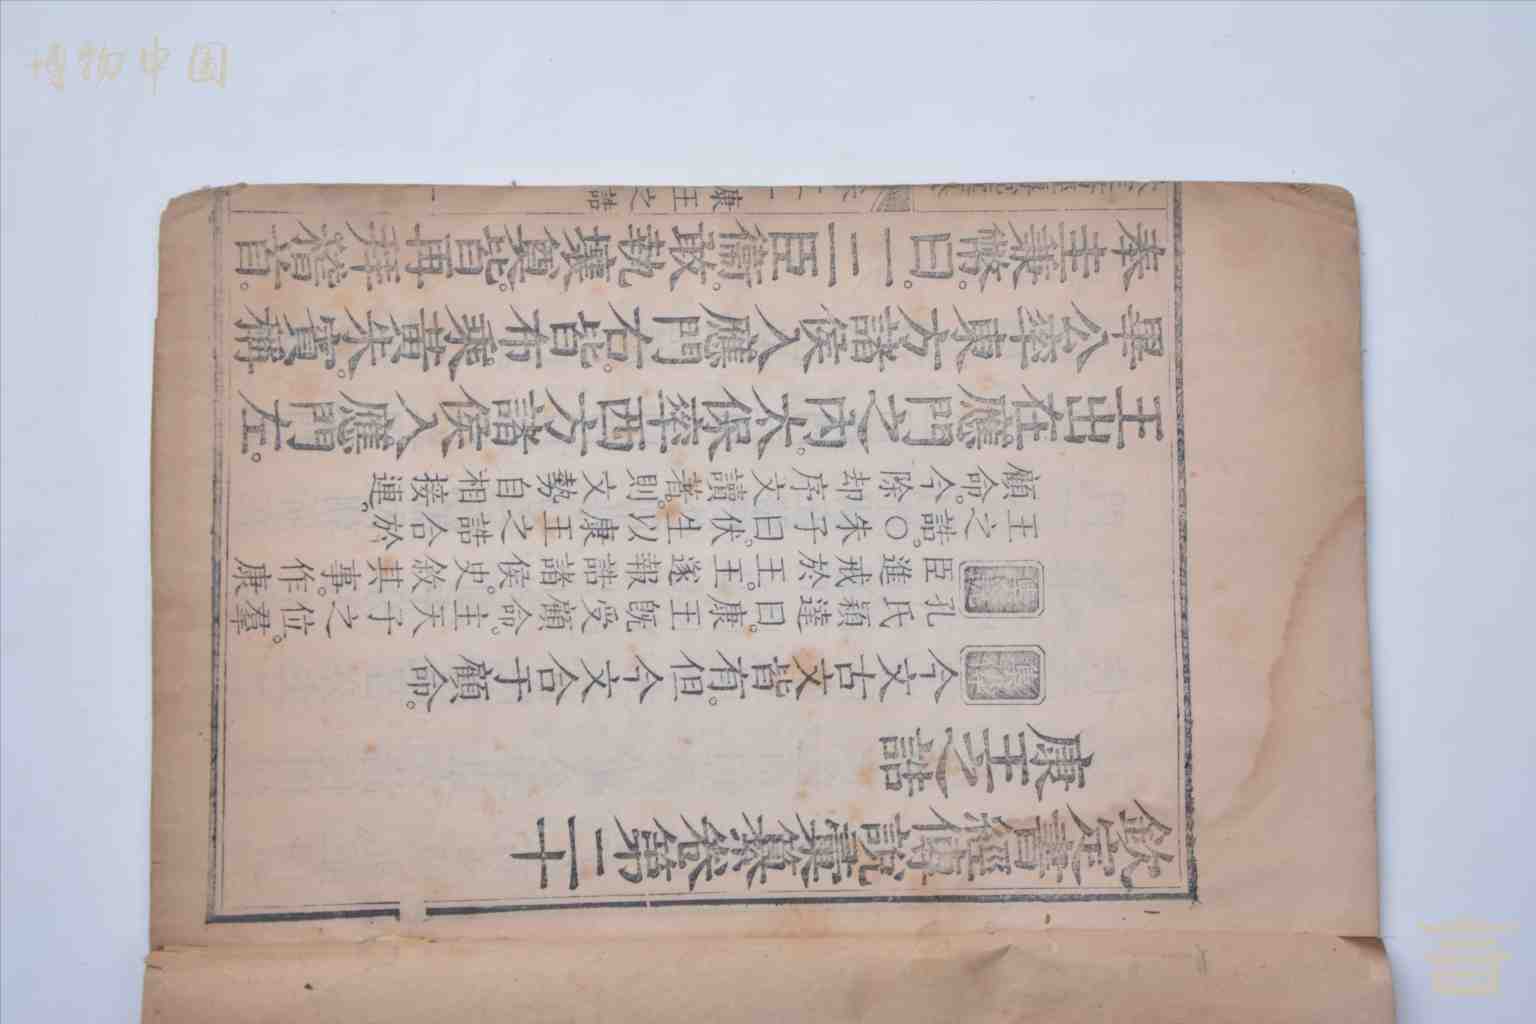 博物中国
欽定書經傳說彙纂卷第二十
康王之誥
集傳今文古文皆有。但今文合于顧命。
集說孔氏穎達曰。康王既受顧命。主天子之位。羣
臣進戒於王。王遂報誥諸侯。史敘其事。作康
王之誥。〇朱子曰。伏生以康王之誥合於
顧命。今除却序文讀著。則文勢自相接連。
王出在應門之內。太保率西方諸侯入應門左。
畢公率東方諸侯入應門右。皆布乘黃朱。賓稱
奉圭兼幣。曰。一二臣衛。敢執壤奠。皆再拜稽首。
康王之誥 一